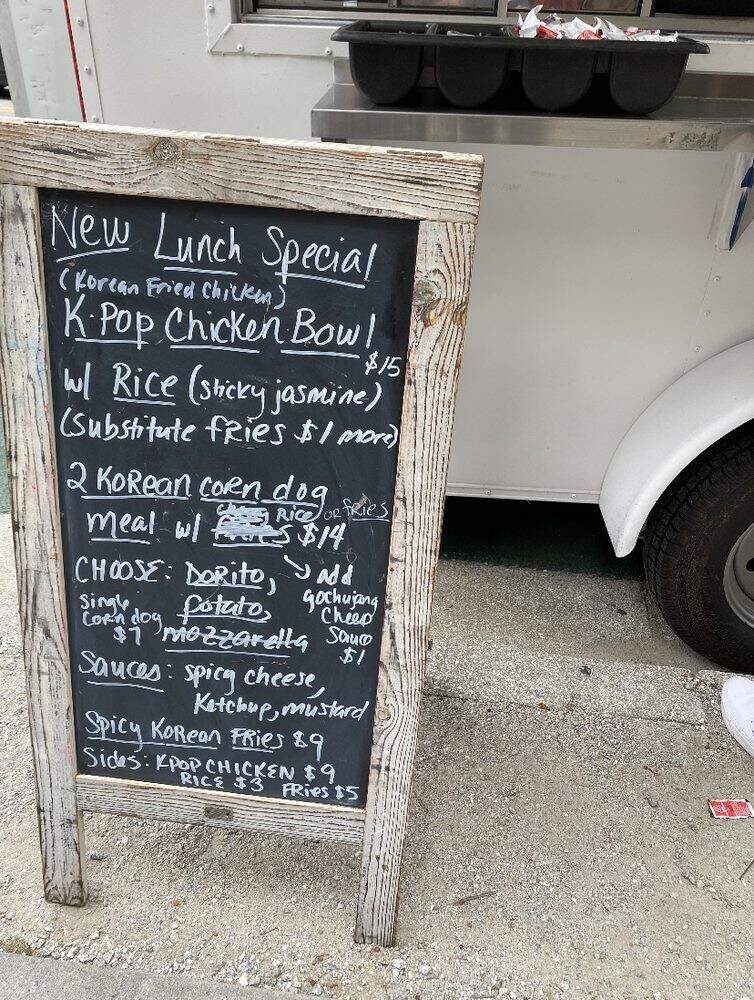 New Lunch Special
(Korean Fried Chicken)
K-Pop Chicken Bowl
$15
w/ Rice (sticky jasmine)
(Substitute fries $1 more)
2 Korean corn dog
meal w/ Rice or fries $14
CHOOSE: DORITO,
potato,
mozzarella
single
corn dog
$7
add
gochujang
Cheese
Sauce
$1
Sauces: spicy cheese,
Ketchup, mustard
Spicy Korean Fries $9
Sides: KPOP CHICKEN $9
RICE $3 Fries $5